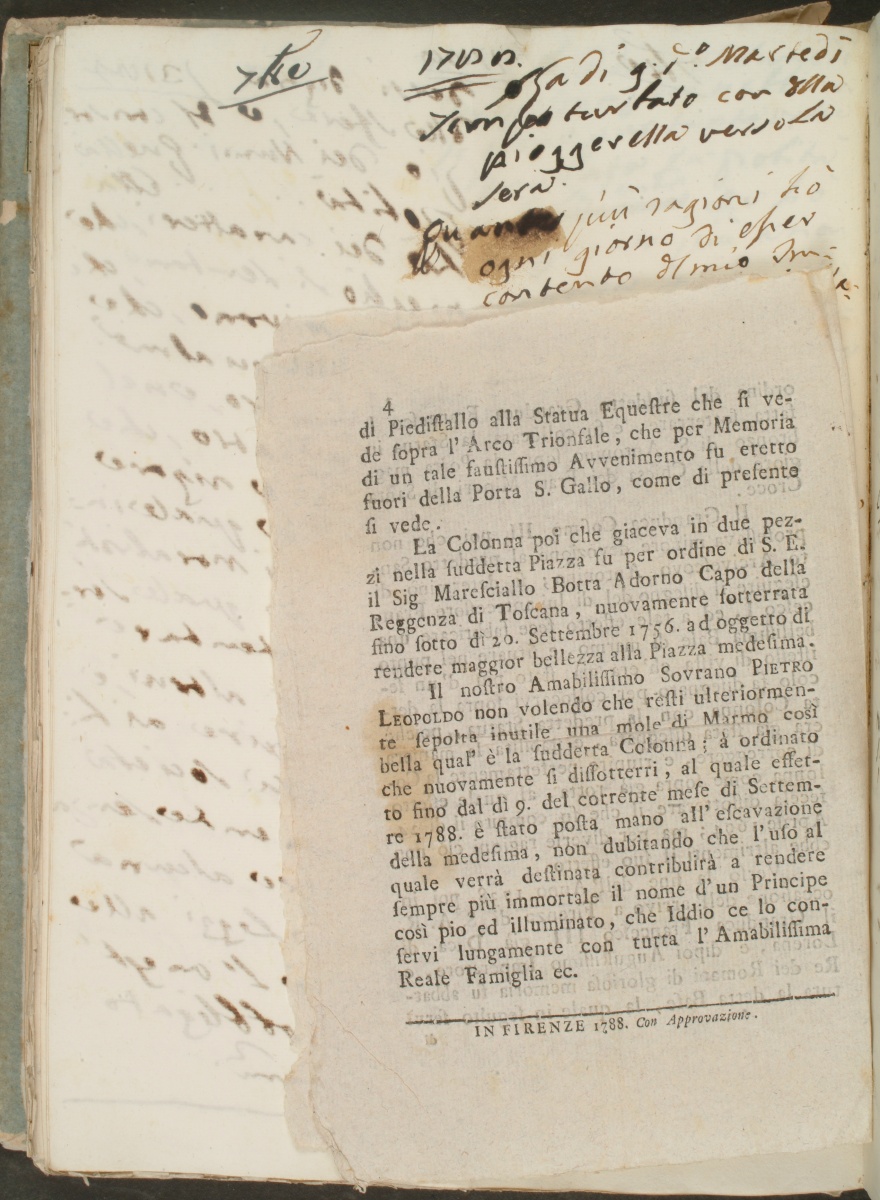 7bre
1788.
di g. i.° Martedì
turbato con della
pioggerella verso La
sera.
più ragioni hò
ogni giorno di esser
contento del mio
4
di Piediſtallo alla Statua Equeſtre che ſi ve-
de ſopra l'Arco Trionfale, che per Memoria
di un tale fauſtiſſimo Avvenimento fu eretto
fuori della Porta S. Gallo, come di preſente
ſi vede.
La Colonna poi che giaceva in due pez-
zi nella ſuddetta Piazza fu per ordine di S. E.
il Sig Mareſciallo Botta Adorno Capo della
Reggenza di Toſcana, nuovamente ſotterrata
fino ſotto dì 20. Settembre 1756. ad oggetto di
rendere maggior bellezza alla Piazza medeſima.
Il noſtro Amabiliſſimo Sovrano PIETRO
LEOPOLDO non volendo che reſti ulteriormen-
te ſepolta inutile una mole di Marmo così
bella qual' è la ſuddetta Colonna; à ordinato
che nuovamente ſi diſſotterri, al quale effet-
to fino dal dì 9. del corrente meſe di Settem-
re 1788. è ſtato poſta mano all'eſcavazione
della medeſima, non dubitando che l'uſo al
quale verrà deſtinata contribuirà a rendere
ſempre più immortale il nome d'un Principe
così pio ed illuminato, che Iddio ce lo con-
ſervi lungamente con tutta l'Amabiliſſima
Reale Famiglia ec.
IN FIRENZE 1788. Con Approvazione.